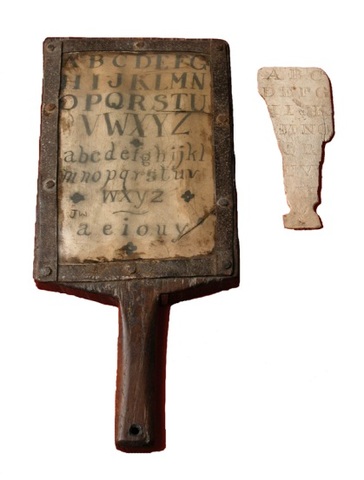 A B C D E F G
H I J K L M N
O P Q R S T U
V W X Y Z
a b c d e f g h i j k l
m n o p q r s t u v
w x y z
JW
a e i o u y
A B C
D E F G